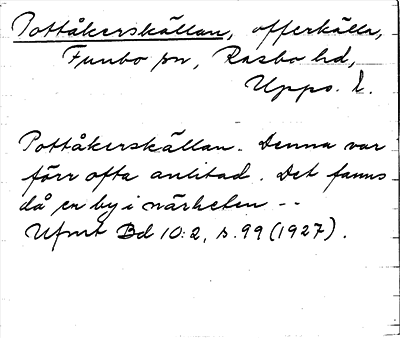 Pottåkerskällan, offerkälla,
Funbo sn, Rasbo hd,
Upps. l.
Pottåkerskällan. Denna var
förr ofta anlitad. Det fanns
då en by i närheten --
Ufmt Bd 10:2, s. 99 (1927).